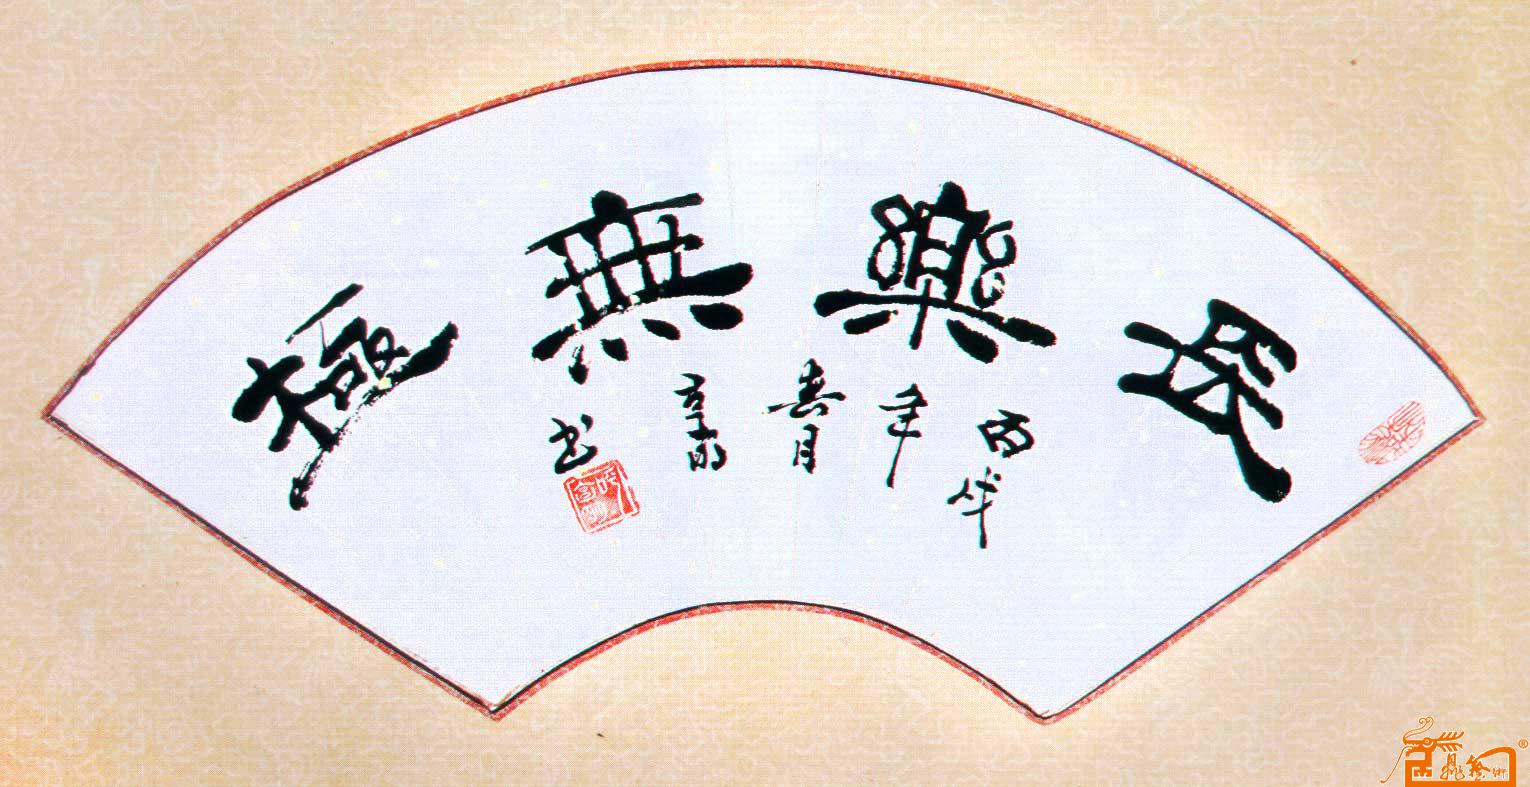 長樂無極
丙戌
年
春月
書